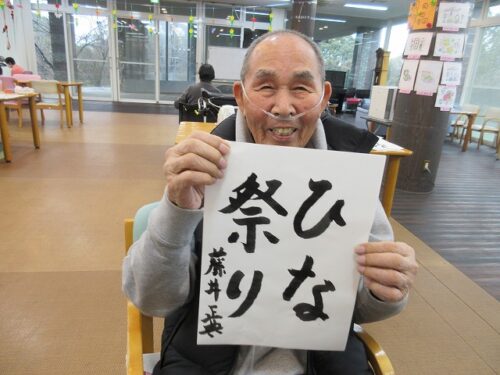 ひな
祭り
藤井正